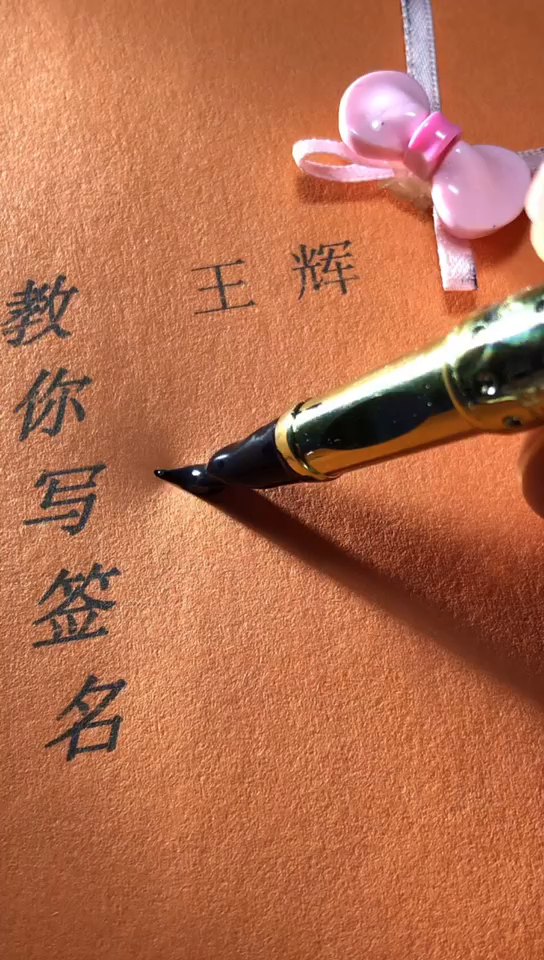 教你写签名
王辉